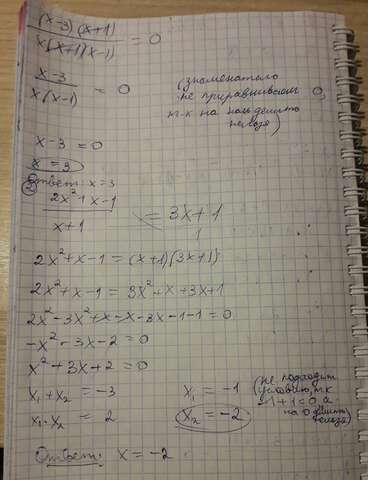 (x-3)(x+1)
x(x+1)(x-1) = 0
x-3
x(x-1) = 0
(знаменатель
не приравниваем 0,
т-к на ноль делить
нельзя)
x-3=0
x=3
Ответ: x=3
②
2x²+x-1
x+1 = 3x+1
1
2x²+x-1=(x+1)(3x+1)
2x²+x-1=3x²+x+3x+1
2x²-3x²+x-x-3x-1-1=0
-x²-3x-2=0
x²+3x+2=0
x₁+x₂=-3 x₁=-1
x₁·x₂= 2 x₂=-2
(не подходит
условию, т.к
-1+1=0, а
на 0 делить
нельзя)
Ответ: x=-2